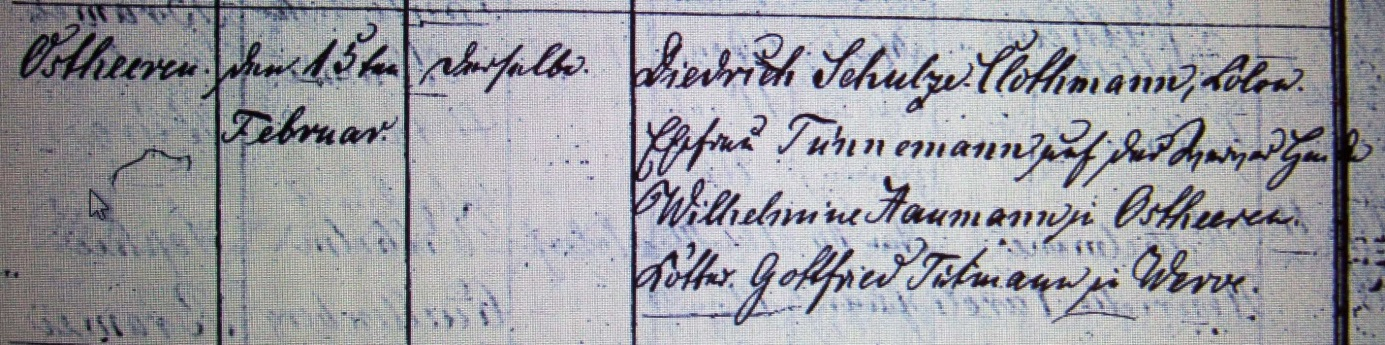 Ostheeren.
den 15ten
Februar.
derselbe.
Diedrich Schulze Clothmann, Colon.
Ehefrau Tünnemann auf der Werver Heide
Wilhelmine Haumann zu Ostheeren.
Kötter Gottfried Tütmann zu Werve.